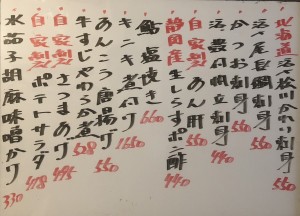 北海道活〆松川かれい刺身 550
活〆尾長鯛刺身 550
かつお刺身 440
活〆農魚帆立刺身 440
自家製あん肝 550
静岡産生しらすポン酢 440
鮎塩焼き 660
キンキ煮付け 1650
あんこう唐揚げ
牛すじやわらか煮 528
自家製さつまあげ 495
自家製ポテトサラダ 418
水茄子胡麻味噌かけ 330